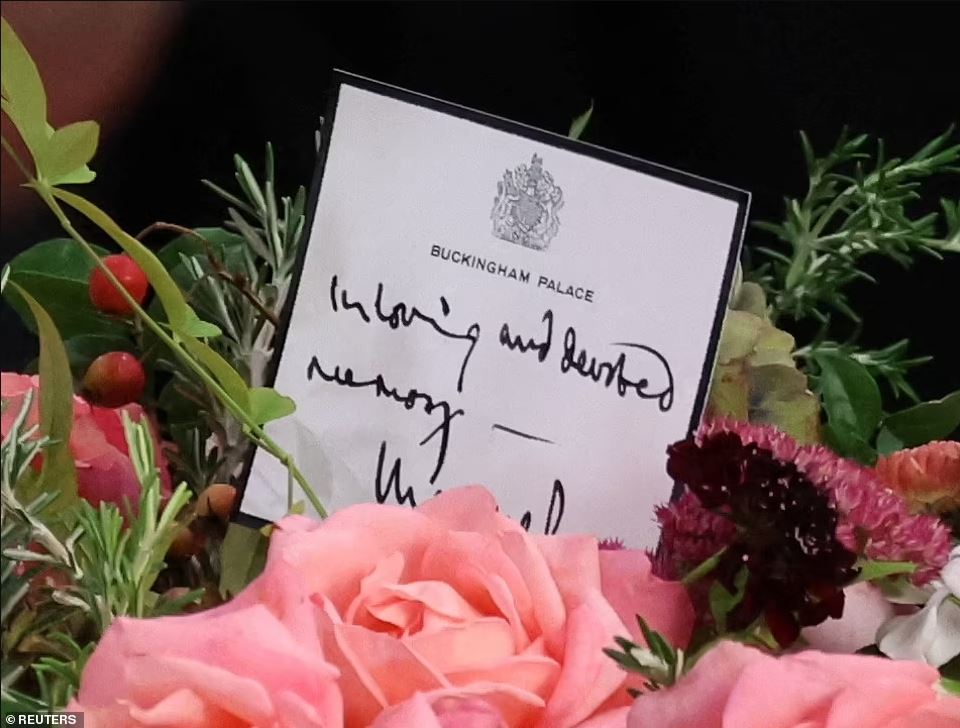 BUCKINGHAM PALACE
In loving and devoted
memory —
© REUTERS